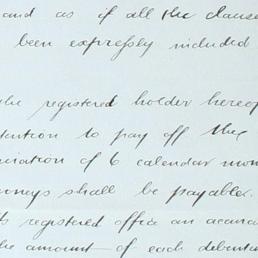 and as if all the clause
been expressly included
the registered holder hereof
tention to pay off the
piration of 6 calendar mon
moneys shall be payable.
ts registered office an accura
the amount of each debentu